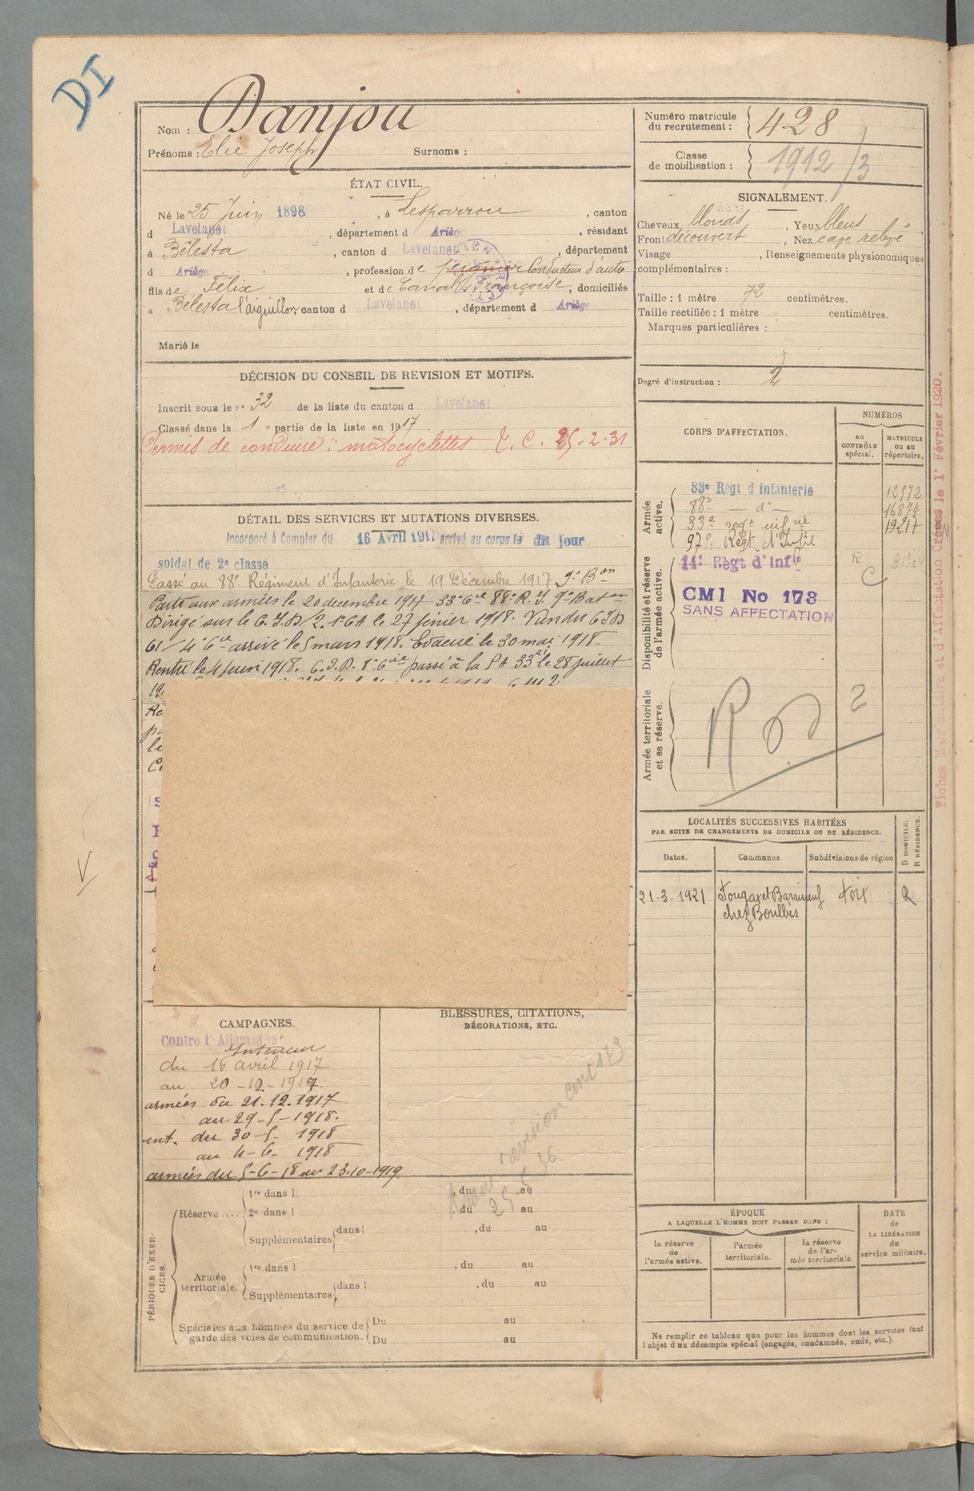 DI
Nom : Danjou
Prénoms : Elie Joseph Surnoms :
ÉTAT CIVIL.
Né le 25 Juin 1898, à Lesparrou, canton
d Lavelanet, département d Ariège, résidant
à Bélesta, canton d Lavelanet, département
d Ariège, profession de peignier Conducteur d'auto
fils de Félix et de Canal Françoise, domiciliés
à Bélesta l'aiguillon, canton d Lavelanet, département d Ariège
Marié le
DÉCISION DU CONSEIL DE REVISION ET MOTIFS.
Inscrit sous le n° 32 de la liste du canton d Lavelanet
Classé dans la 1 e partie de la liste en 1917
Permis de conduire : motocyclettes T. C. 25-2-31
DÉTAIL DES SERVICES ET MUTATIONS DIVERSES.
Incorporé à Compter du 16 Avril 1917 arrivé au corps le dit jour
soldat de 2e classe
Passé au 88e Régiment d'Infanterie le 19 Décembre 1917 9e Bon
Parti aux armées le 20 decembre 1917 33e Cie 88e R.I. 9e Baton
Dirigé sur le C.I.D/2. 1e CA le 27 février 1918. Venu du C.I.D
61/4e Cie arrivé le 5 mars 1918. Evacué le 30 mai 1918.
Rentré le 4 Juin 1918. C.I.D. 8e Cie passé à la 33e le 28 juillet
CAMPAGNES.
Contre l'Allemagne
Intérieur
du 16 avril 1917
au 20-12-1917
armées du 21.12.1917
au 29-5-1918.
int. du 30-5- 1918
au 4-6- 1918
armées du 5-6-18 au 23-10-1919
BLESSURES, CITATIONS,
DÉCORATIONS, ETC.
revision cont 173
25 5 36
PÉRIODES D'EXERCICES.
Réserve.....
1re dans l , du au
2e dans l , du au
Supplémentaires dans l , du au
Armée territoriale.
1re dans l , du au
Supplémentaires dans l , du au
Spéciales aux hommes du service de garde des voies de communication.
Du au
Du au
Numéro matricule du recrutement : 428
Classe de mobilisation : 1912/3
SIGNALEMENT.
Cheveux blonds, Yeux bleus
Front découvert, Nez cave relevé
Visage , Renseignements physionomiques
complémentaires :
Taille : 1 mètre 72 centimètres.
Taille rectifiée : 1 mètre centimètres.
Marques particulières :
Degré d'instruction : 2
CORPS D'AFFECTATION.
NUMÉROS
au CONTRÔLE spécial.
MATRICULE ou au répertoire.
Armée active.
83e Régt d'infanterie 12972
88e — do — 16874
33e regt infrie 19217
97e Régt d'Infie
Disponibilité et réserve de l'armée active.
14e Régt d'Infie R C
CMI No 173
SANS AFFECTATION
Armée territoriale et sa réserve.
R 2
LOCALITÉS SUCCESSIVES HABITÉES
PAR SUITE DE CHANGEMENTS DE DOMICILE OU DE RÉSIDENCE.
Dates. Communes Subdivisions de région D DOMICILE. R RÉSIDENCE.
21-3-1921 Fougax et Barrineuf Foix R
chez Boulbès
ÉPOQUE
A LAQUELLE L'HOMME DOIT PASSER DANS :
la réserve de l'armée active.
l'armée territoriale.
la réserve de l'armée territoriale
DATE de LA LIBÉRATION du service militaire.
Ne remplir ce tableau que pour les hommes dont les services font
l'objet d'un décompte spécial (engagés, condamnés, omis, etc.).
Fiches Matricule et d'Affectation Créées le 1r Février 1920.